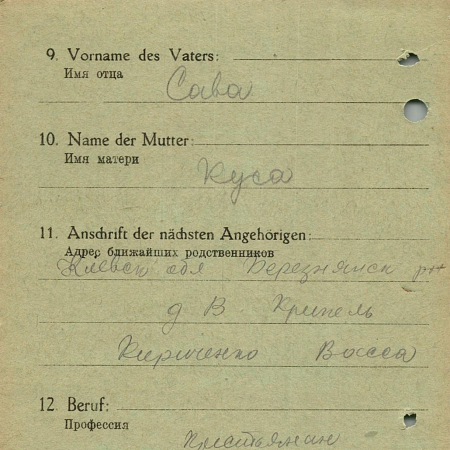 9. Vorname des Vaters:
Имя отца
Сава
10. Name der Mutter:
Имя матери
Куса
11. Anschrift der nächsten Angehörigen:
Адрес ближайших родственников
Киевск обл Березнянск р-н
д В. Крупель
Кириченко Васса
12. Beruf:
Профессия
Крестьянин